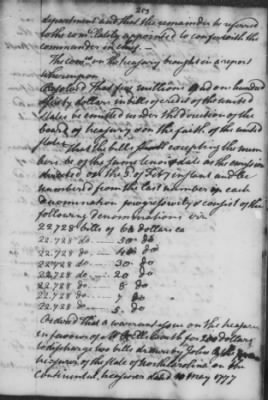 253
department and that the remainder be referred
to the com. lately appointed to confer with the
commander in chief. —
The Com. on the treasury brought in a report
whereupon
Resolved That five millions and one hundred
& fifty dollars in bills of credit of the united
states be emitted under the direction of the
board of treasury on the faith of the united
states
That the bills except the numbers
be of the same tenor & date as the emission
directed on the instant and be
numbered from the last number in each
denomination progressively & consist of the
following denominations viz
22.728 bills of 60 dollars ea
22.728 do — 50 do
22.728 do — 40 do
22.728 do — 30 do
22.728 do — 20 do
22.728 do — 8 do
22.728 do — 7 do
22.728 do — 5 do
Ordered That a warrant issue on the treasurer
in favour of for dollars
to discharge two bills drawn by John
treasurer of the state of North Carolina on the
Continental treasurer dated May 1777